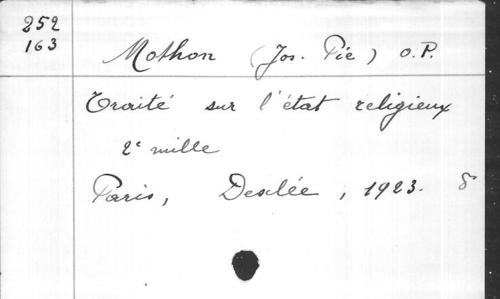 252
163
Mothon (Jos. Pie) O.P.
Traité sur l'état religieux
2e mille
Paris, Desclée, 1923. 8°